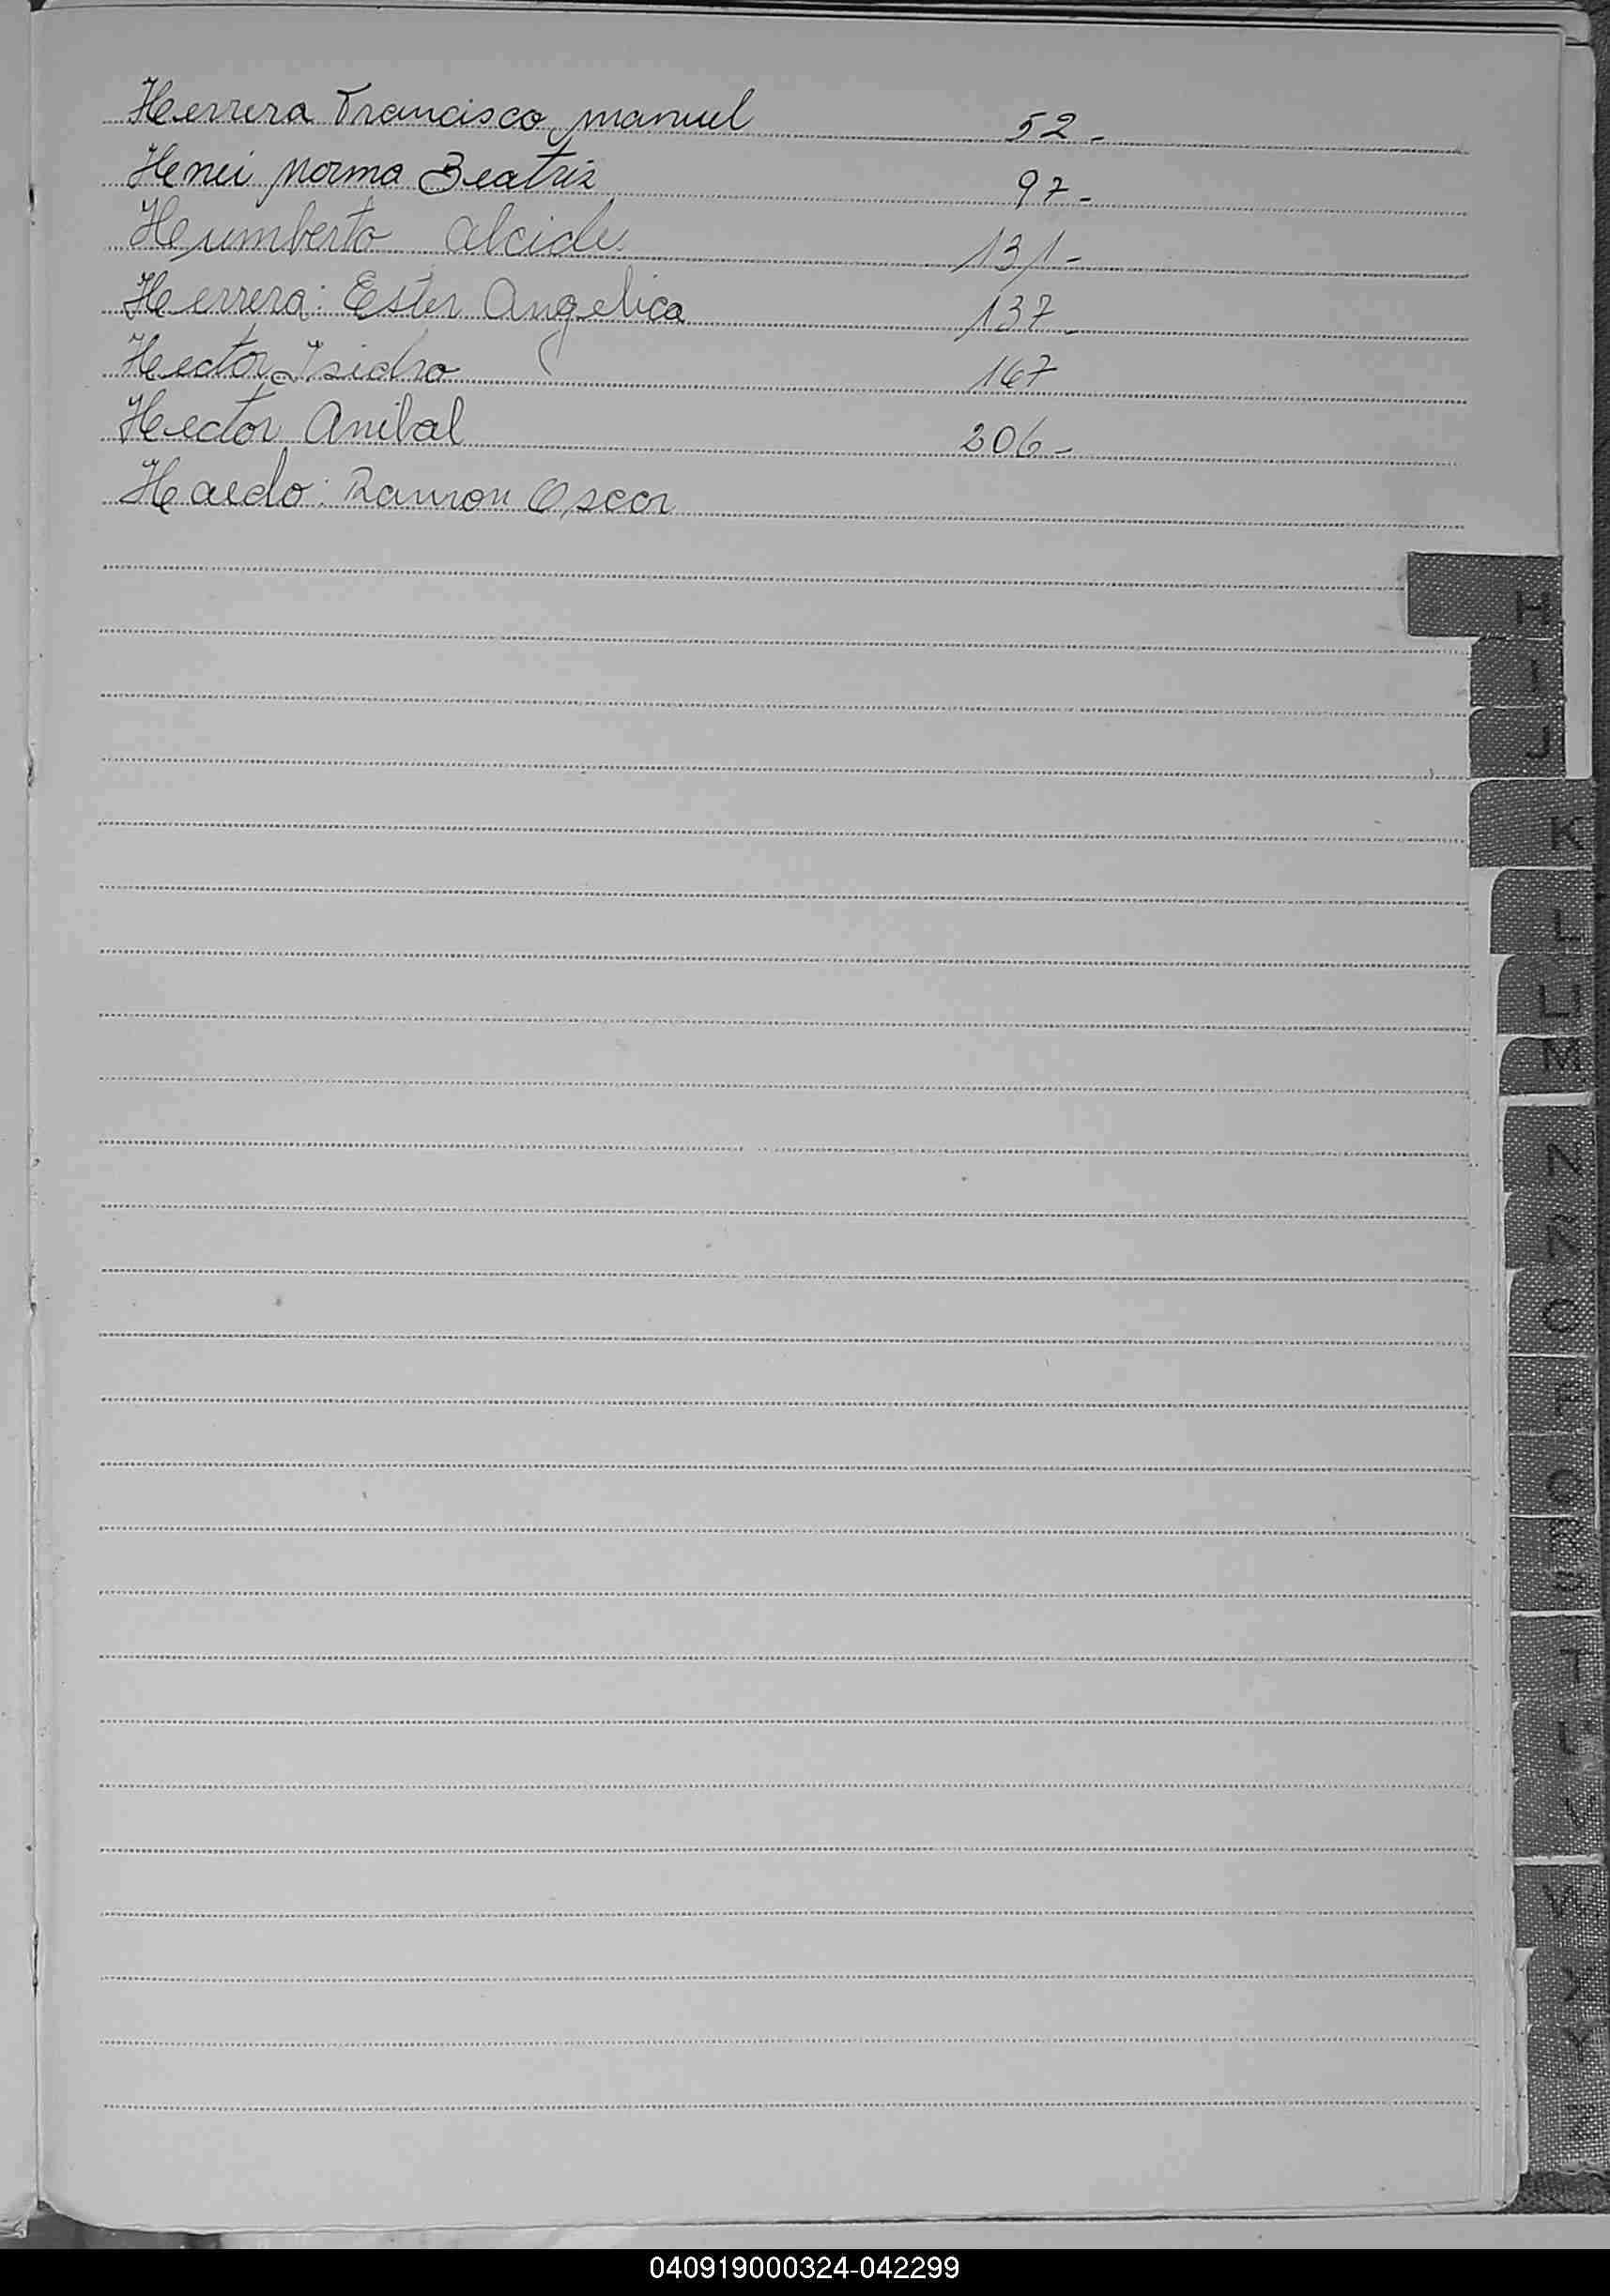 Herrera Francisco manuel 52-
Henei Norma Beatriz 97-
Heumberto alcide 131-
Herrera: Ester Angelica 137-
Hector Isidro 167
Hector Anibal 206-
Haedo: Ramon Oscar
H
I
J
K
L
LL
M
N
Ñ
O
P
Q
R
S
T
U
V
W
X
Y
Z
040919000324-042299